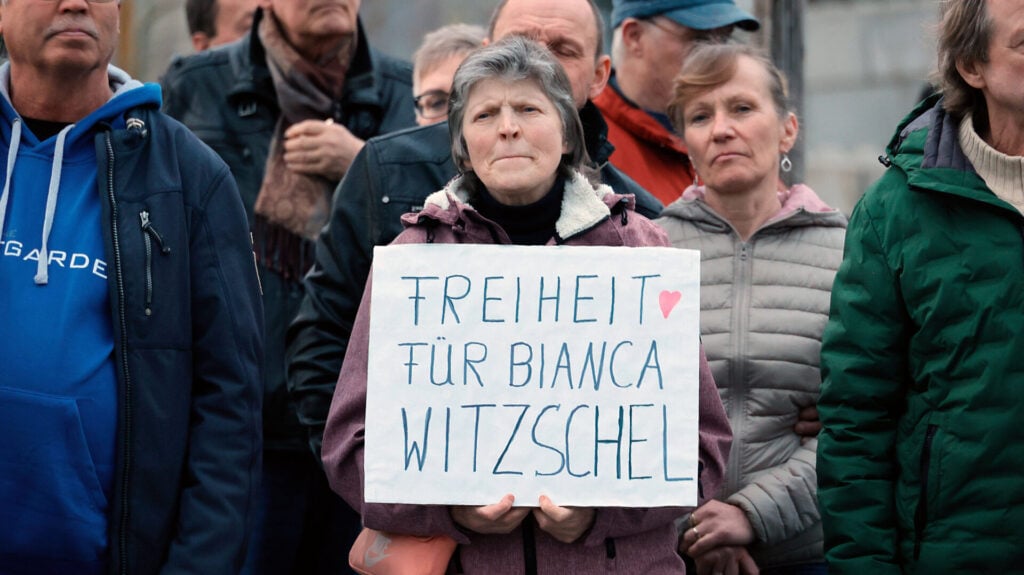 GARDE
FREIHEIT
FÜR BIANCA
WITZSCHEL